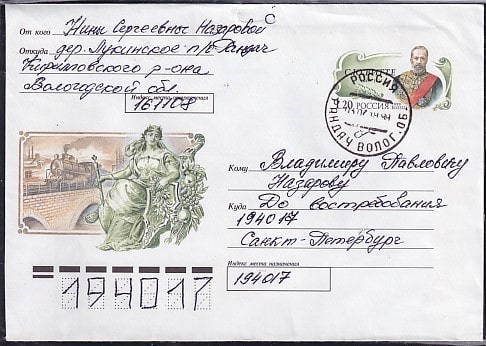 От кого Нины Сергеевны Назаровой
Откуда дер. Лукинское п/о Рандач
Кирилловского р-она
Вологодской обл.
Индекс места отправления
161128
РОССИЯ
1.20 РОССИЯ
РОССИЯ
ВОЛОГ. ОБ
Кому Владимиру Павловичу
Назарову
Куда До востребования
194017
Санкт-Петербург
Индекс места назначения
194017
194017